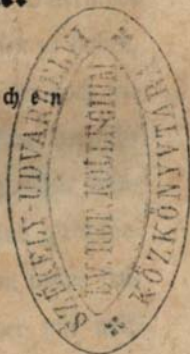 ch e n
SZÉKELY-UDVARHELYI
EV. REF. KOLLEGIUM
KÖZKÖNYVTÁRA